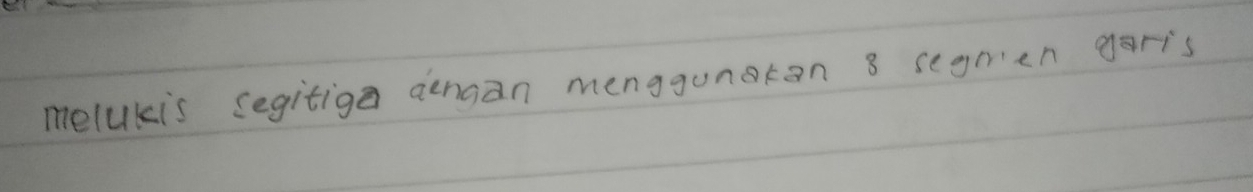 melukis segitiga dengan menggunakan 3 segmen garis